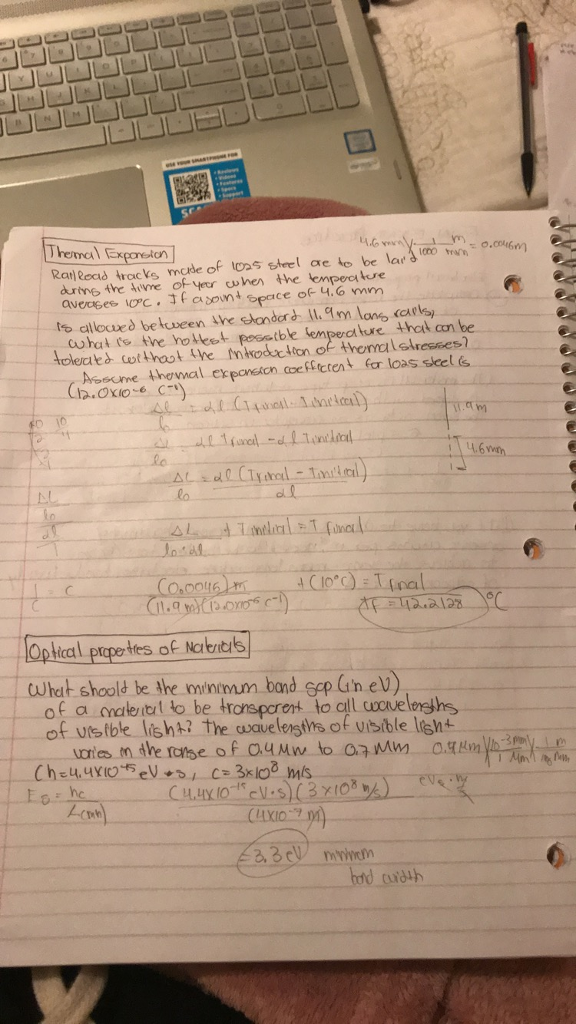 USE YOUR SMARTPHONE FOR
• Reviews
• Videos
• Features
• Specs
• Support
Thermal Expansion
4.6 mm | 1 m / 1000 mm = 0.0046m
Railroad tracks made of 1025 steel are to be laid
during the time of year when the temperature
averages 10°C. If a joint space of 4.6 mm
is allowed between the standard 11.9m long rails,
what is the hottest possible temperature that can be
tolerated without the introduction of thermal stresses?
Assume thermal expansion coefficient for 1025 steel is
(12.0x10⁻⁶ C⁻¹)
Δl / lo = αl (Tfinal - Tinitial)
11.9m
Δl / lo = αl Tfinal - αl Tinitial
4.6mm
ΔL / lo = αl (Tfinal - Tinitial) / αl
ΔL / lo·αl + Tinitial = Tfinal
1 / C = C
(0.0046)m / (11.9 m)(12.0x10⁻⁶ C⁻¹) + (10°C) = Tfinal
Tf = 42.2128 °C
Optical properties of Materials
What should be the minimum band gap (in eV)
of a material to be transparent to all wavelengths
of visible light? The wavelengths of visible light
varies in the range of 0.4 μm to 0.7 μm
(h=4.4x10⁻¹⁵ eV•s, c=3x10⁸ m/s
= hc
(4.4x10⁻¹⁵ eV·s)(3x10⁸ m/s) / (4x10⁻⁷ m)
=3.3 eV minimum
band width